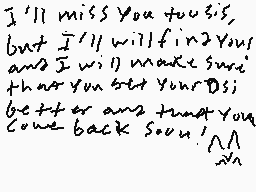 I'll miss you too sis,
but I'll will find your
and I will make sure
that you get your DSi
better and that you
come back soon!